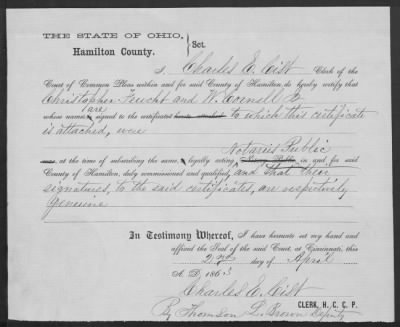 THE STATE OF OHIO, } Sct.
Hamilton County.
I, Charles E. Cist Clerk of the
Court of Common Pleas within and for said County of Hamilton, do hereby certify that
Christopher Feucht and W. Cornell
whose names are signed to the certificates to which this certificate
is attached, were
Notaries Public
at the time of subscribing the same, legally acting Notary Public in and for said
County of Hamilton, duly commissioned and qualified, and that their
signatures, to the said certificates, are respectively
genuine
In Testimony Whereof, I have hereunto set my hand and
affixed the Seal of the said Court, at Cincinnati, this
2nd day of April
A. D. 1863
Charles E. Cist
CLERK, H. C. C. P.
By Thomson L. Brown Deputy